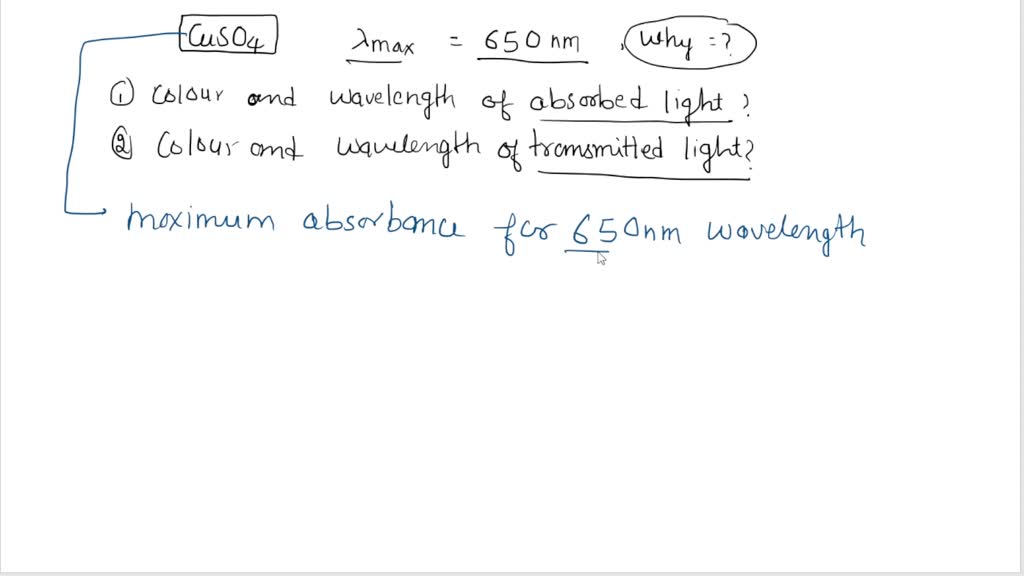 CuSO4 λmax = 650 nm , Why = ?
① Colour and wavelength of absorbed light ?
② Colour and wavelength of transmitted light?
maximum absorbance for 650nm wavelength